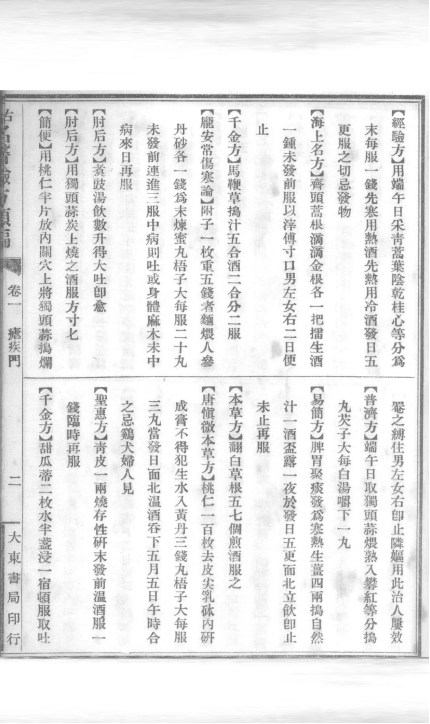 【經驗方】用端午日采靑蒿葉陰乾桂心等分爲
末每服一錢先寒用熱酒先熱用冷酒發日五
更服之切忌發物
【海上名方】齊頭蒿根滴滴金根各一把擂生酒
一鍾未發前服以滓傅寸口男左女右二日便
止
【千金方】馬鞭草搗汁五合酒二合分二服
【龐安常傷寒論】附子一枚重五錢者麵煨人參
丹砂各一錢爲末煉蜜丸梧子大每服二十九
未發前連進三服中病則吐或身體麻木未中
病來日再服
【肘后方】煮豉湯飲數升得大吐卽愈
【肘后方】用獨頭蒜炭上燒之酒服方寸匕
【簡便】用桃仁半片放內關穴上將獨頭蒜搗爛
罨之縛住男左女右卽止隣嫗用此治人屢效
【普濟方】端午日取獨頭蒜煨熟入礬紅等分搗
丸芡子大每白湯嚼下一丸
【易簡方】脾胃聚痰發爲寒熱生薑四兩搗自然
汁一酒盃露一夜於發日五更面北立飲卽止
未止再服
【本草方】翻白草根五七個煎酒服之
【唐愼微本草方】桃仁一百枚去皮尖乳砵內硏
成膏不得犯生水入黃丹三錢丸梧子大每服
三九當發日面北溫酒吞下五月五日午時合
之忌鷄犬婦人見
【聖惠方】靑皮一兩燒存性硏末發前溫酒服一
錢臨時再服
【千金方】甜瓜蒂二枚水半盞浸一宿頓服取吐
古名醫驗方類編
卷一 瘧疾門
二
大東書局印行